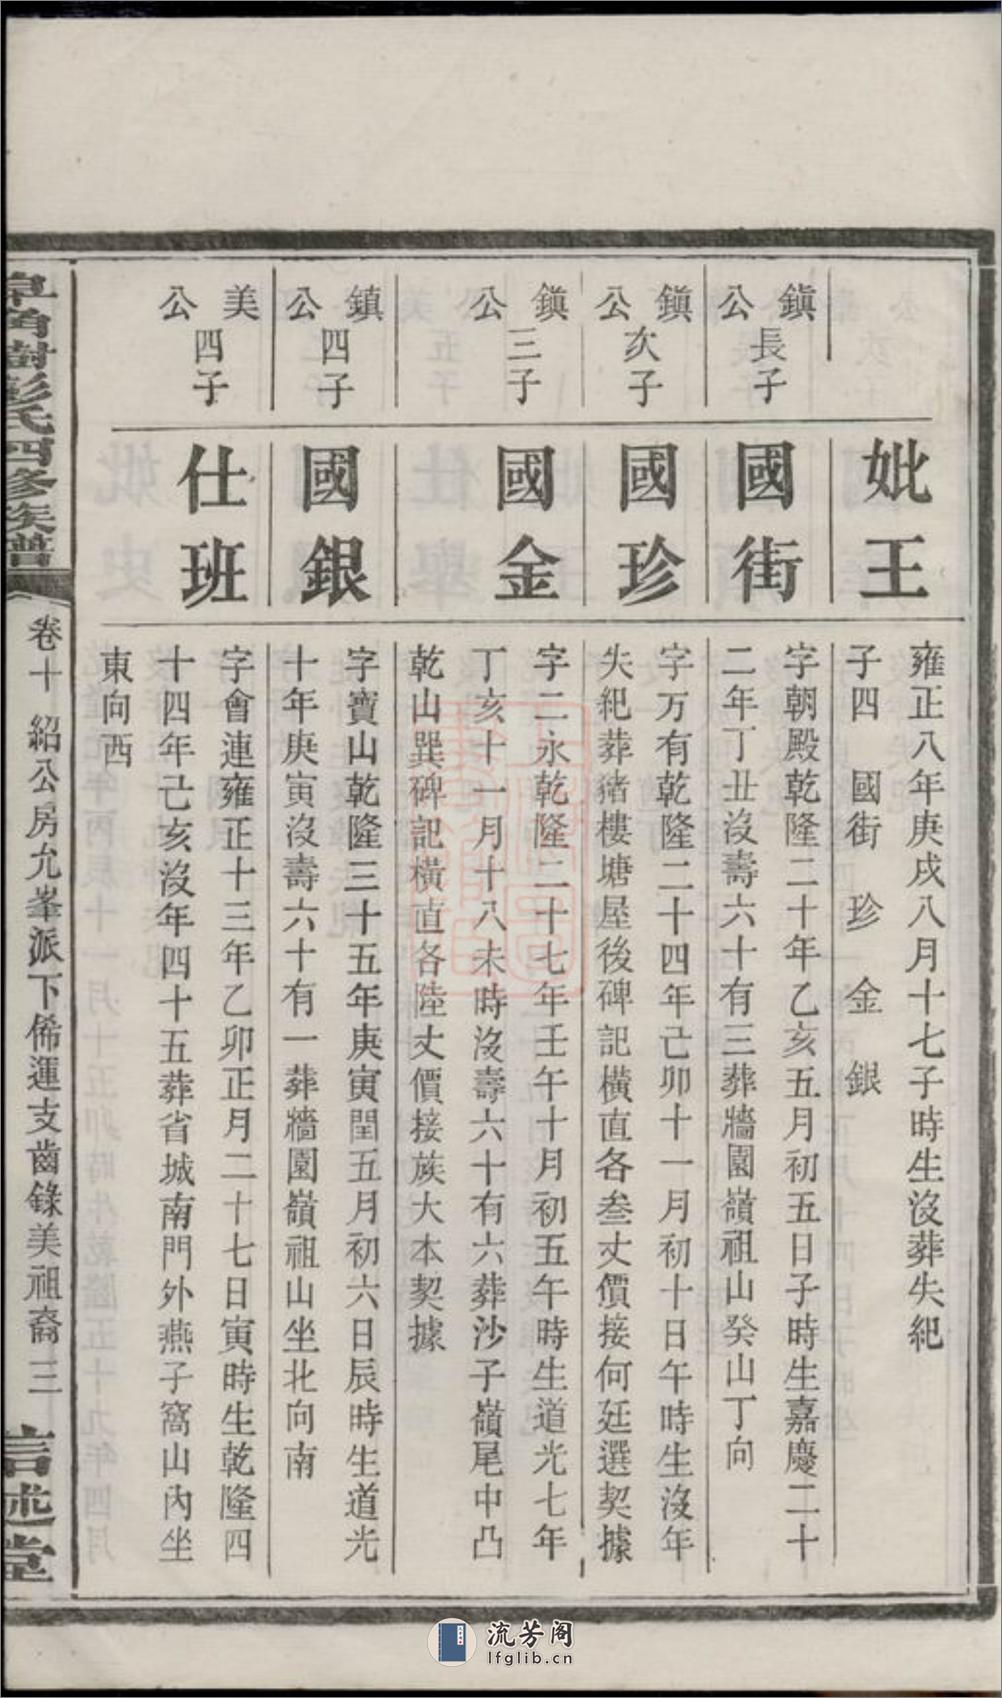 妣王
雍正八年庚戌八月十七子時生沒葬失紀
子四 國街 珍 金 銀
鎮公長子
國街
字朝殿乾隆二十年乙亥五月初五日子時生嘉慶二十
二年丁丑沒壽六十有三葬牆園嶺祖山癸山丁向
鎮公次子
國珍
字万有乾隆二十四年己卯十一月初十日午時生沒年
失紀葬猪樓塘屋後碑記橫直各叁丈價接何廷選契據
鎮公三子
國金
字二永乾隆二十七年壬午十月初五午時生道光七年
丁亥十一月十八未時沒壽六十有六葬沙子嶺尾中凸
乾山巽碑記橫直各陸丈價接族大本契據
鎮公四子
國銀
字寶山乾隆三十五年庚寅閏五月初六日辰時生道光
十年庚寅沒壽六十有一葬牆園嶺祖山坐北向南
美公四子
仕班
字會連雍正十三年乙卯正月二十七日寅時生乾隆四
十四年己亥沒年四十五葬省城南門外燕子窩山內坐
東向西
皁角樹彭氏四修族譜
卷十 紹公房允峯派下俙運支齒錄美祖裔 三
信述堂
流芳阁
lfglib.cn